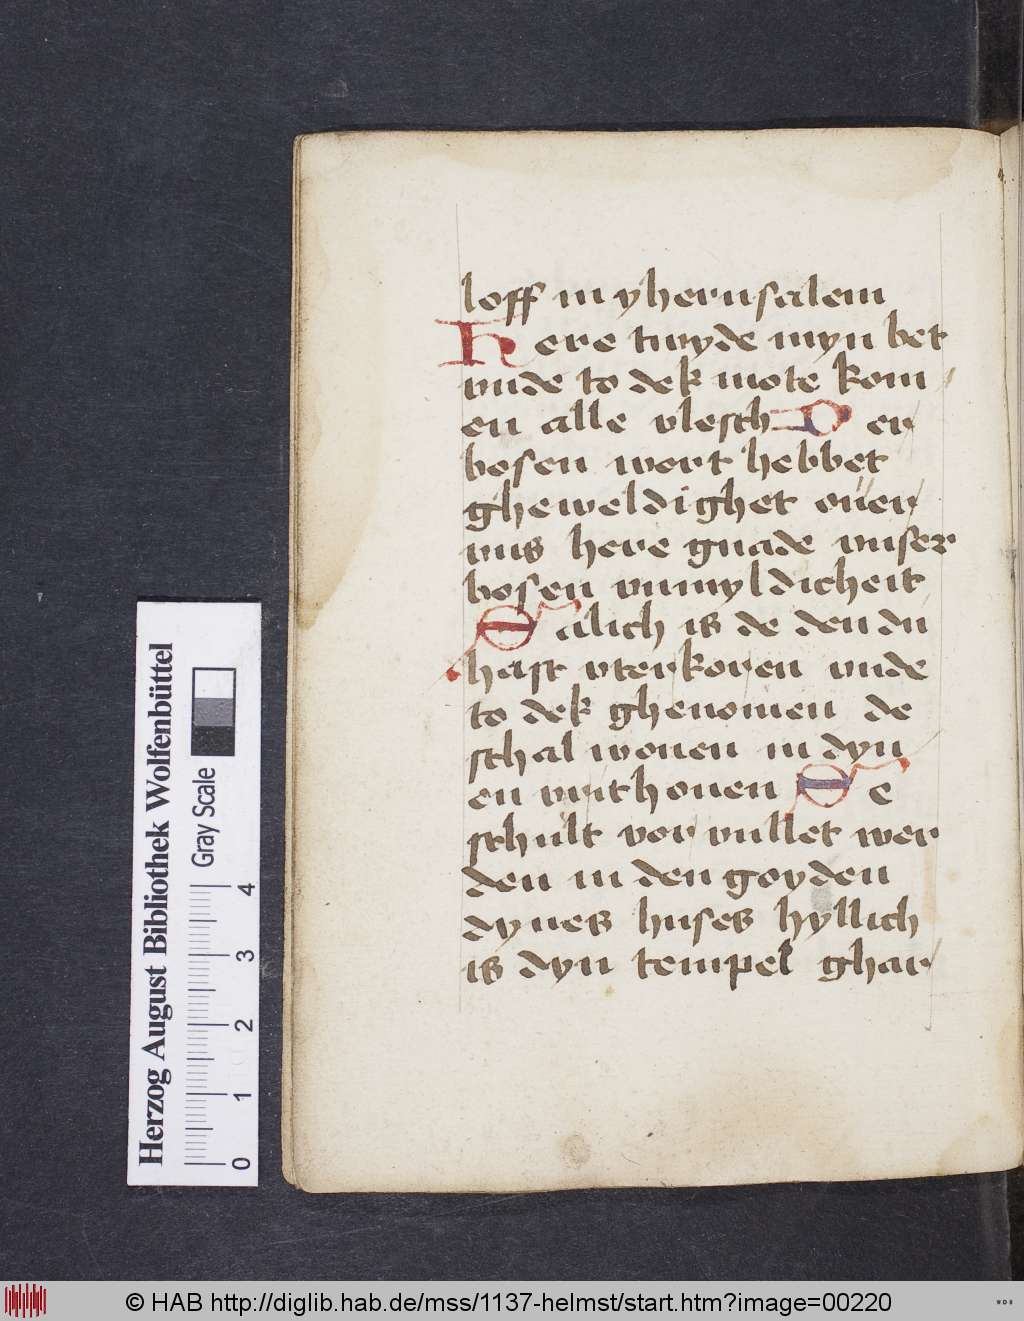 loff in yherusalem
Here twyde myn bet
vnde to dek mote kom
en alle vlesch Der
bosen wort hebbet
gheweldighet ouer
vns here gnade vnser
bosen vnmyldicheit
Salich is de den du
hast vterkoren vnde
to dek ghenomen de
schal wonen in dyn
en vrithouen We
schult vor vullet wer
den in den goyden
dynes huses hyllich
is dyn tempel ghar
Herzog August Bibliothek Wolfenbüttel
Gray Scale
0 1 2 3 4
© HAB http://diglib.hab.de/mss/1137-helmst/start.htm?image=00220